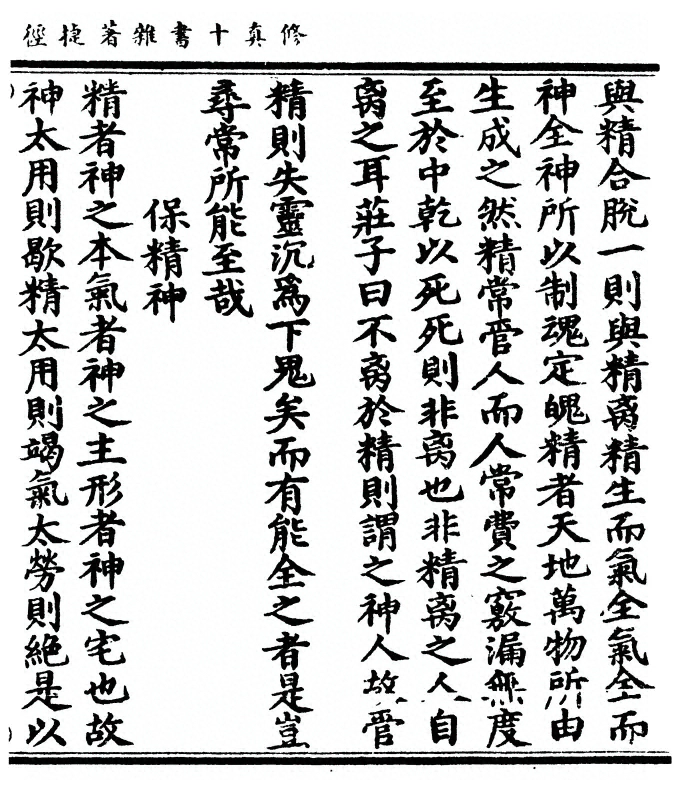 修真十書雜著捷徑
與精合脫一則與精离精生而氣全氣全而
神全神所以制魂定魄精者天地萬物所由
生成之然精常管人而人常費之竅漏無度
至於中乾以死死則非离也非精离之人自
离之耳莊子曰不离於精則謂之神人故管
精則失靈沉爲下鬼矣而有能全之者是豈
尋常所能至哉
保精神
精者神之本氣者神之主形者神之宅也故
神太用則歇精太用則竭氣太勞則絕是以